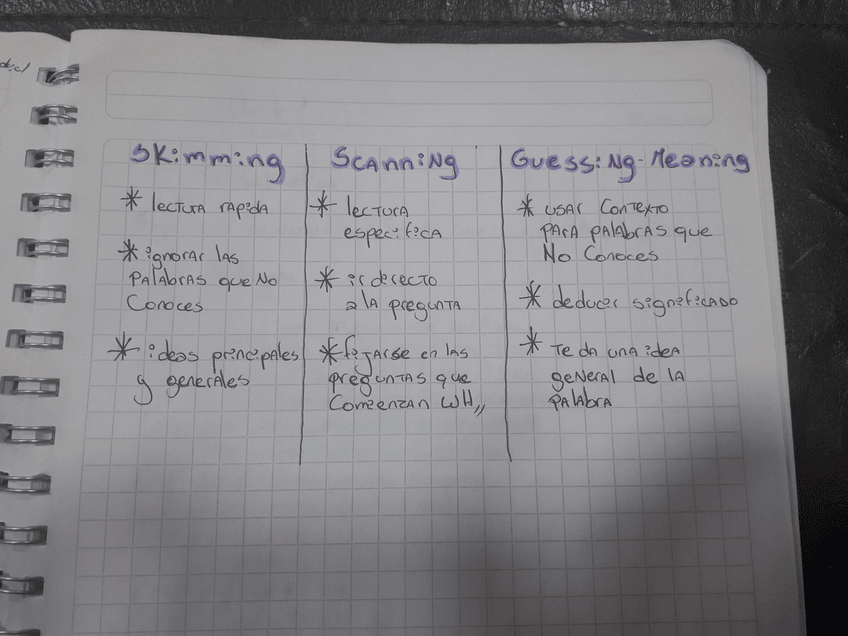 Skimming
* lectura rapida
* ignorar las
palabras que no
conoces
* ideas principales
y generales
Scanning
* lectura
especifica
* ir derecto
a la pregunta
* fijarse en las
preguntas que
comienzan WH,,
Guessing-Meaning
* usar contexto
para palabras que
no conoces
* deducir significado
* te da una idea
general de la
palabra